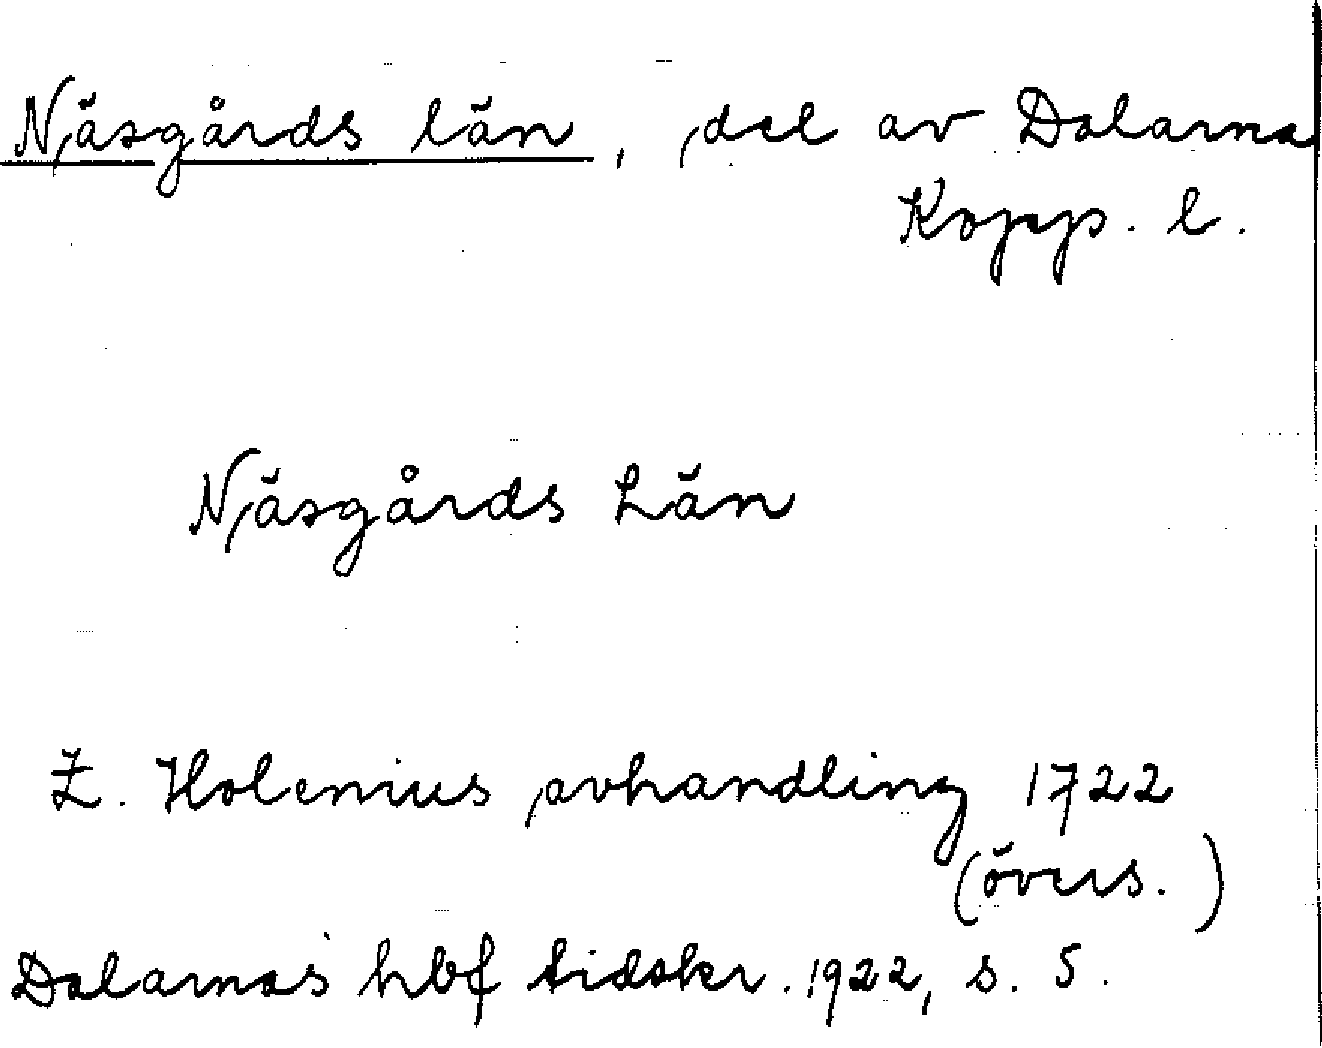 Näsgårds län, del av Dalarna
Kopp. l.
Näsgårds Län
Z. Holenius avhandling 1722
(övers.)
Dalarnas hbf tidskr. 1922, s. 5.